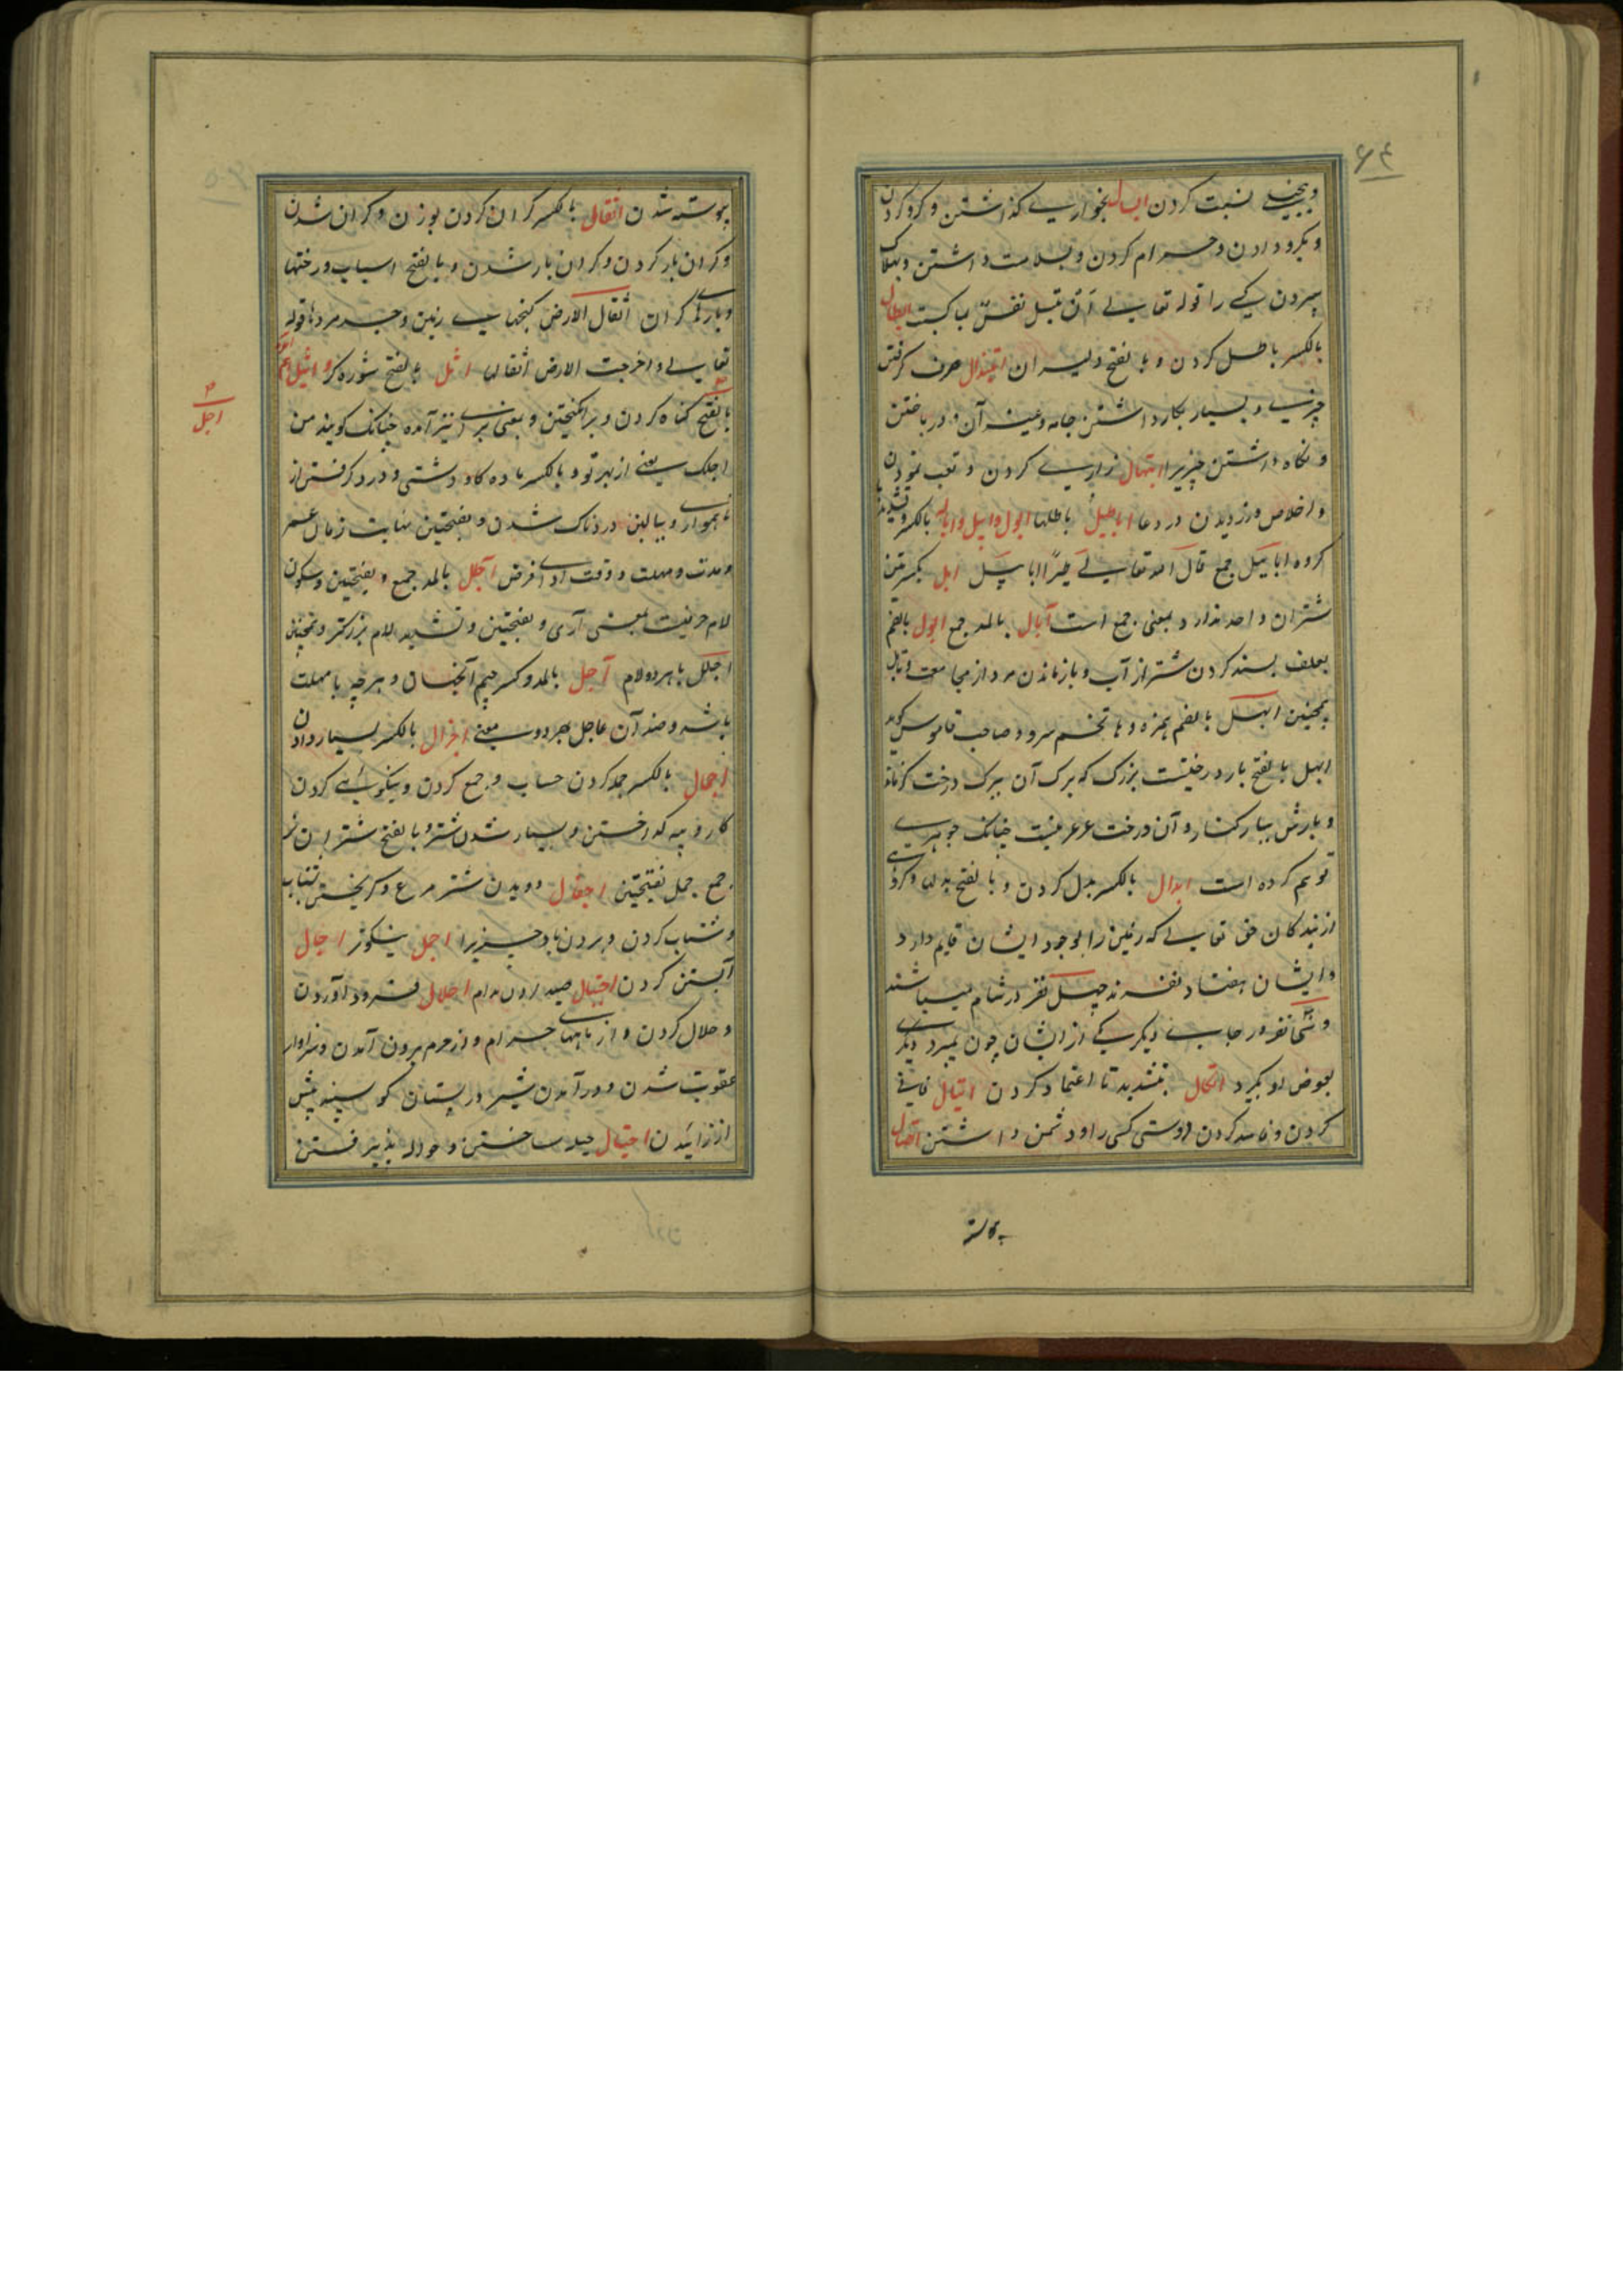 ۶۴
و بخیلی نسبت کردن ابسال بخواری گذاشتن و گرو کردن
و بگرو دادن و حرام کردن و بسلامت داشتن و بهلاک
سپردن کسی را قوله تعالی ان تبسل نفس بما کسبت ابطال
بالکسر باطل کردن و بالفتح دلیران ابتذال صرف کرفتن
چیزی و بسیار بکار داشتن جامه و غیر آن و در باختن
و نگاه داشتن چیزیرا ابتهال زاری کردن و تعب نمودن
و اخلاص ورزیدن در دعا اباطیل باطلها ابول و ابیل و اباله بالکسر و تشدید با
کروه ابابیل جمع قال الله تعالی طیرا ابابیل ابل بکسرتین
شتران واحد ندارد و بمعنی جمع است آبال بالمد جمع ابول بالضم
بعلف بسند کردن شتر از آب و باز ماندن مرد از مجامعت و ابل
بفتحتین ابهل بالضم همزه و ها تخم سرو و صاحب قاموس کوید
ابهل بالفتح بار درختیست بزرک که برک آن ببرک درخت کز ماند
و بارش ببار کنار و آن درخت عرعر نیست چنانک جوهری
توهم کرده است ابدال بالکسر بدل کردن و بالفتح بدلها و کروهی
از بندکان حق تعالی که زمین را بوجود ایشان قایم دارد
و ایشان هفتاد نفرند چهل نفر در شام میباشند
و سی نفر در جای دیکر یکی از ایشان چون بمیرد دیگری
بعوض او بگیرد اتکال بتشدید تا اعتماد کردن اتبال فانی
کردن و فاسد کردن دوستی کسی را و دشمن داشتن اتصال
پیوسته
پیوسته شدن اثقال بالکسر کران کردن بوزن و کران شدن
و کران بار کردن و کران بار شدن و بالفتح اسباب و رختها
و بارهای کران اثقال الارض کنجهای زمین و جسد مردها قوله
تعالی و اخرجت الارض اثقالها اثل بالفتح شوره کز و اثیل
بالفتح کناه کردن و برانکیختن و بمعنی برای نیز آمده چنانک کویند من
اجلک یعنی از بهر تو و بالکسر ماده کاو دشتی و درد کرفتن از
ناهمواری و بالین دردناک شدن و بفتحتین نهایت زمان عمر
و مدت و مهلت و وقت ادای قرض آجال بالمد جمع و بفتحتین و سکون
لام حرفیست بمعنی آری و بفتحتین و تشدید لام بزرکتر و همچنین
اجلل باهر دو لام آجل بالمد و کسر جیم آنجهان و هر چه با مهلت
باشد و ضد آن عاجل بهر دو معنی اجزال بالکسر بسیار دادن
اجمال بالکسر جمله کردن حساب و جمع کردن و نیکوئی کردن
کار و پیه کداختن و بسیار شدن شتر و بالفتح شتران نر
جمع جمل بفتحتین اجفال دویدن شتر مرغ و کریختن بشتاب
و شتاب کردن و بردن باد چیزیرا اجمل نیکوتر احبال
آبستن کردن احتبال صید کردن بدام احلال فرود آوردن
و حلال کردن و از ماههای حرام و از حرم بیرون آمدن و سزاوار
عقوبت شدن و در آمدن شیر در پستان کوسپند پیش
از زائیدن احتیال حیله ساختن و حواله پذیرفتن
اجل